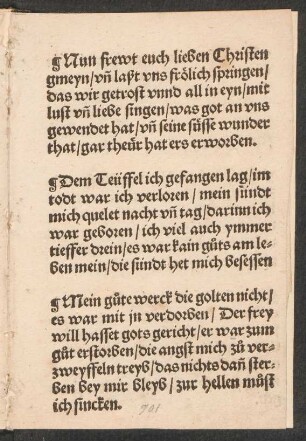 ¶Nun frewt euch lieben Christen
gmeyn/vñ laßt vns frölich springen/
das wir getrost vnnd all in eyn/mit
lust vñ liebe singen/was got an vns
gewendet hat/vñ seine süsse wunder
that/gar theür hat ers erworben.
¶Dem Teüffel ich gefangen lag/im
todt war ich verloren/mein sündt
mich quelet nacht vñ tag/darinn ich
war geboren/ich viel auch ymmer
tieffer drein/es war kain gůts am le-
ben mein/die sündt het mich besessen
¶Mein gůte werck die golten nicht/
es war mit jn verdorben/Der frey
will hasset gots gericht/er war zum
gůt erstorben/die angst mich zů ver-
zweyffeln treyb/das nichts dañ ster-
ben bey mir bleyb/zur hellen můst
ich sincken.